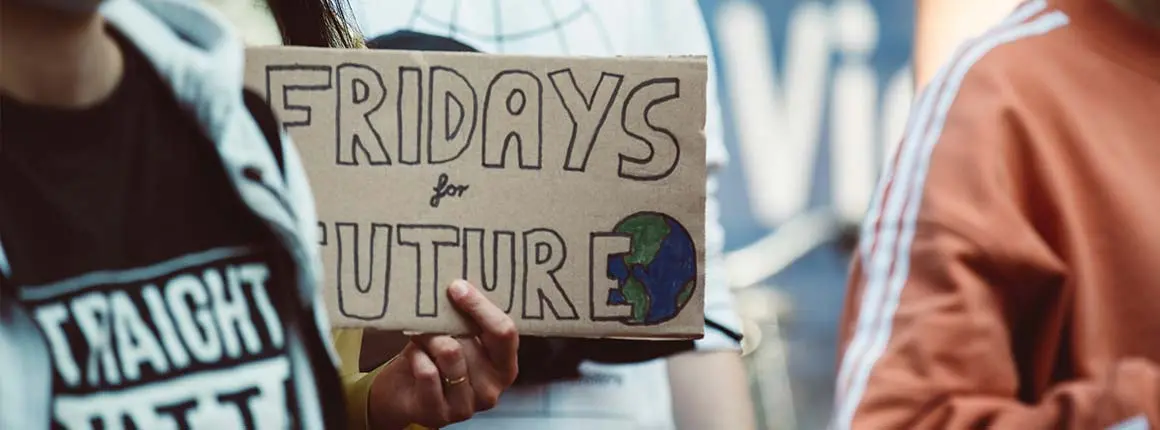 FRIDAYS
for
FUTURE
TRAIGHT